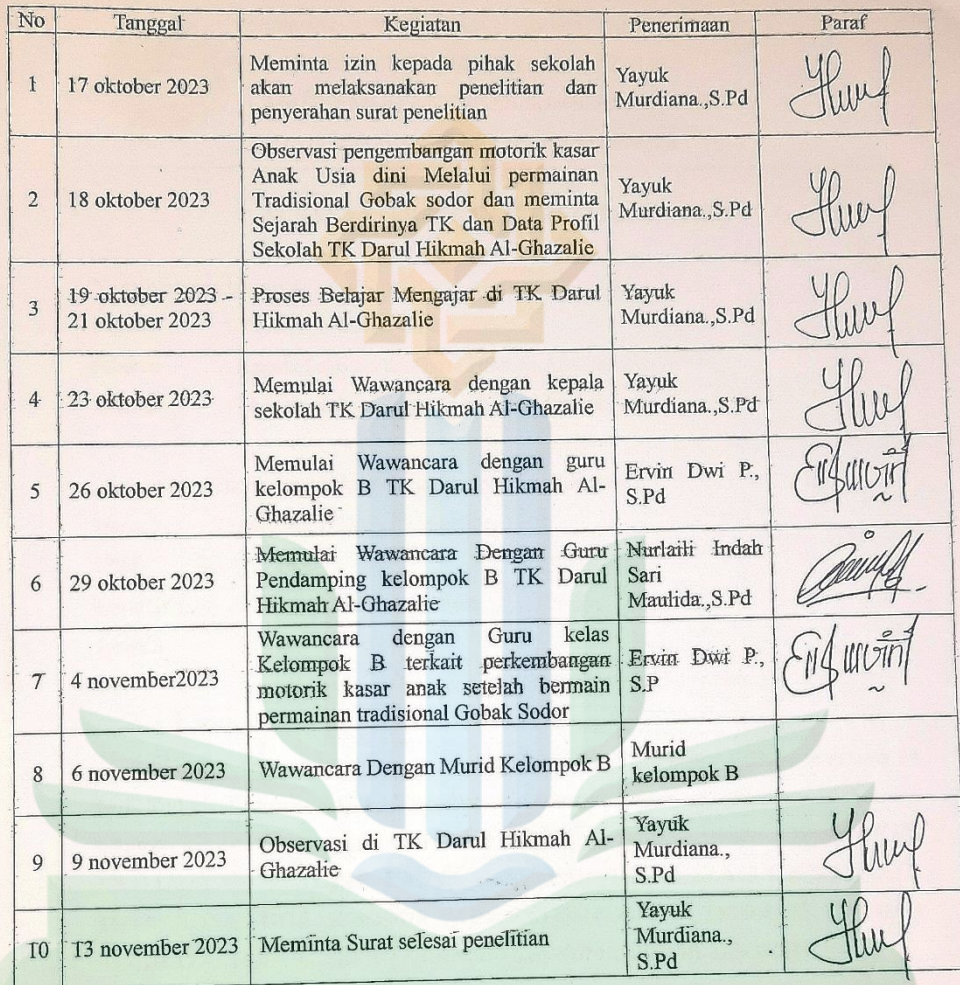 No Tanggal Kegiatan Penerimaan Paraf
1 17 oktober 2023 Meminta izin kepada pihak sekolah
akan melaksanakan penelitian dan
penyerahan surat penelitian
Yayuk
Murdiana.,S.Pd
2 18 oktober 2023 Observasi pengembangan motorik kasar
Anak Usia dini Melalui permainan
Tradisional Gobak sodor dan meminta
Sejarah Berdirinya TK dan Data Profil
Sekolah TK Darul Hikmah Al-Ghazalie
Yayuk
Murdiana.,S.Pd
3 19 oktober 2023 -
21 oktober 2023
Proses Belajar Mengajar di TK Darul
Hikmah Al-Ghazalie
Yayuk
Murdiana.,S.Pd
4 23 oktober 2023 Memulai Wawancara dengan kepala
sekolah TK Darul Hikmah Al-Ghazalie
Yayuk
Murdiana.,S.Pd
5 26 oktober 2023 Memulai Wawancara dengan guru
kelompok B TK Darul Hikmah Al-
Ghazalie
Ervin Dwi P.,
S.Pd
6 29 oktober 2023 Memulai Wawancara Dengan Guru
Pendamping kelompok B TK Darul
Hikmah Al-Ghazalie
Nurlaili Indah
Sari
Maulida.,S.Pd
7 4 november2023 Wawancara dengan Guru kelas
Kelompok B terkait perkembangan
motorik kasar anak setelah bermain
permainan tradisional Gobak Sodor
Ervin Dwi P.,
S.P
8 6 november 2023 Wawancara Dengan Murid Kelompok B
Murid
kelompok B
9 9 november 2023 Observasi di TK Darul Hikmah Al-
Ghazalie
Yayuk
Murdiana.,
S.Pd
10 13 november 2023 Meminta Surat selesai penelitian
Yayuk
Murdiana.,
S.Pd